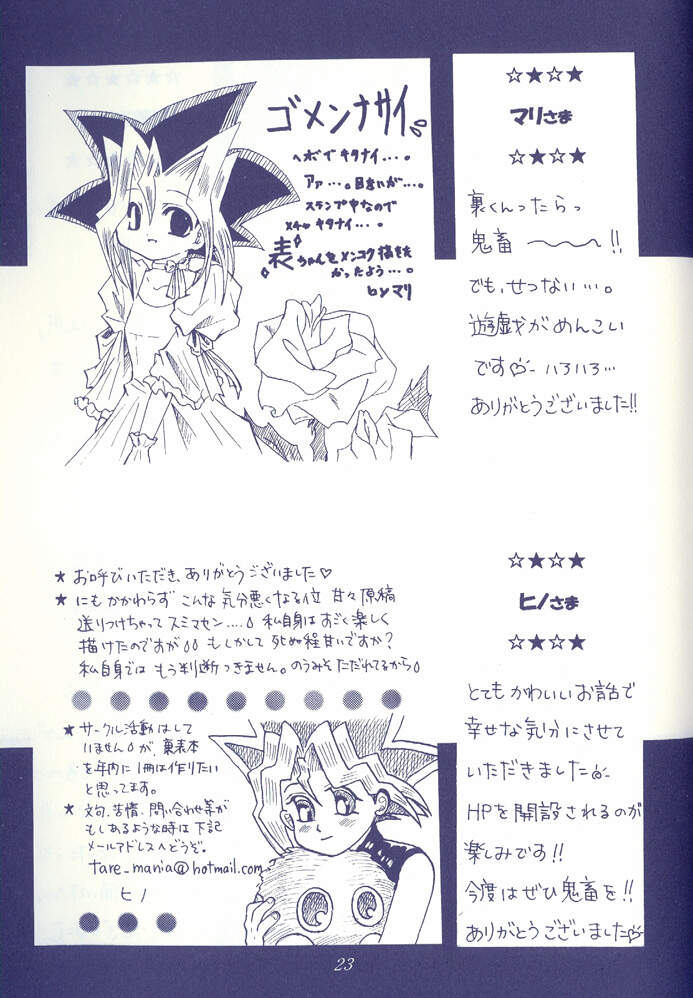 ゴメンナサイ
ヘボでキタナイ…。
アァ…。目まいが…。
スランプ中なので
メチャキタナイ…。
表ちゃんをメンコク描きた
かったよう…。
by マリ
☆★☆★
マリさま
☆★☆★
裏くんったらっ
鬼畜〜〜!!
でも、せつない…。
遊戯がめんこい
です♡ いろいろ…
ありがとうございました!!
★ お呼びいただき、ありがとうございました♡
★ にもかかわらず こんな気分悪くなる位 甘々原稿
送りつけちゃって スミマセン…。私自身は すごく楽しく
描けたのですが もしかして 死ぬ程甘いですか?
私自身では もう判断つきません。のうみそ ただれてるから
★ サークル活動はして
いませんが、裏表本
を年内に1冊は作りたい
と思ってます。
★ 文句、苦情、問い合わせ等が
もしあるような時は 下記
メールアドレスへどうぞ。
tare_mania@hotmail.com
ヒノ
☆★☆★
ヒノさま
☆★☆★
とてもかわいいお話で
幸せな気分にさせて
いただきました
HPを開設されるのが
楽しみです!!
今度はぜひ鬼畜を!!
ありがとうございました♡
23